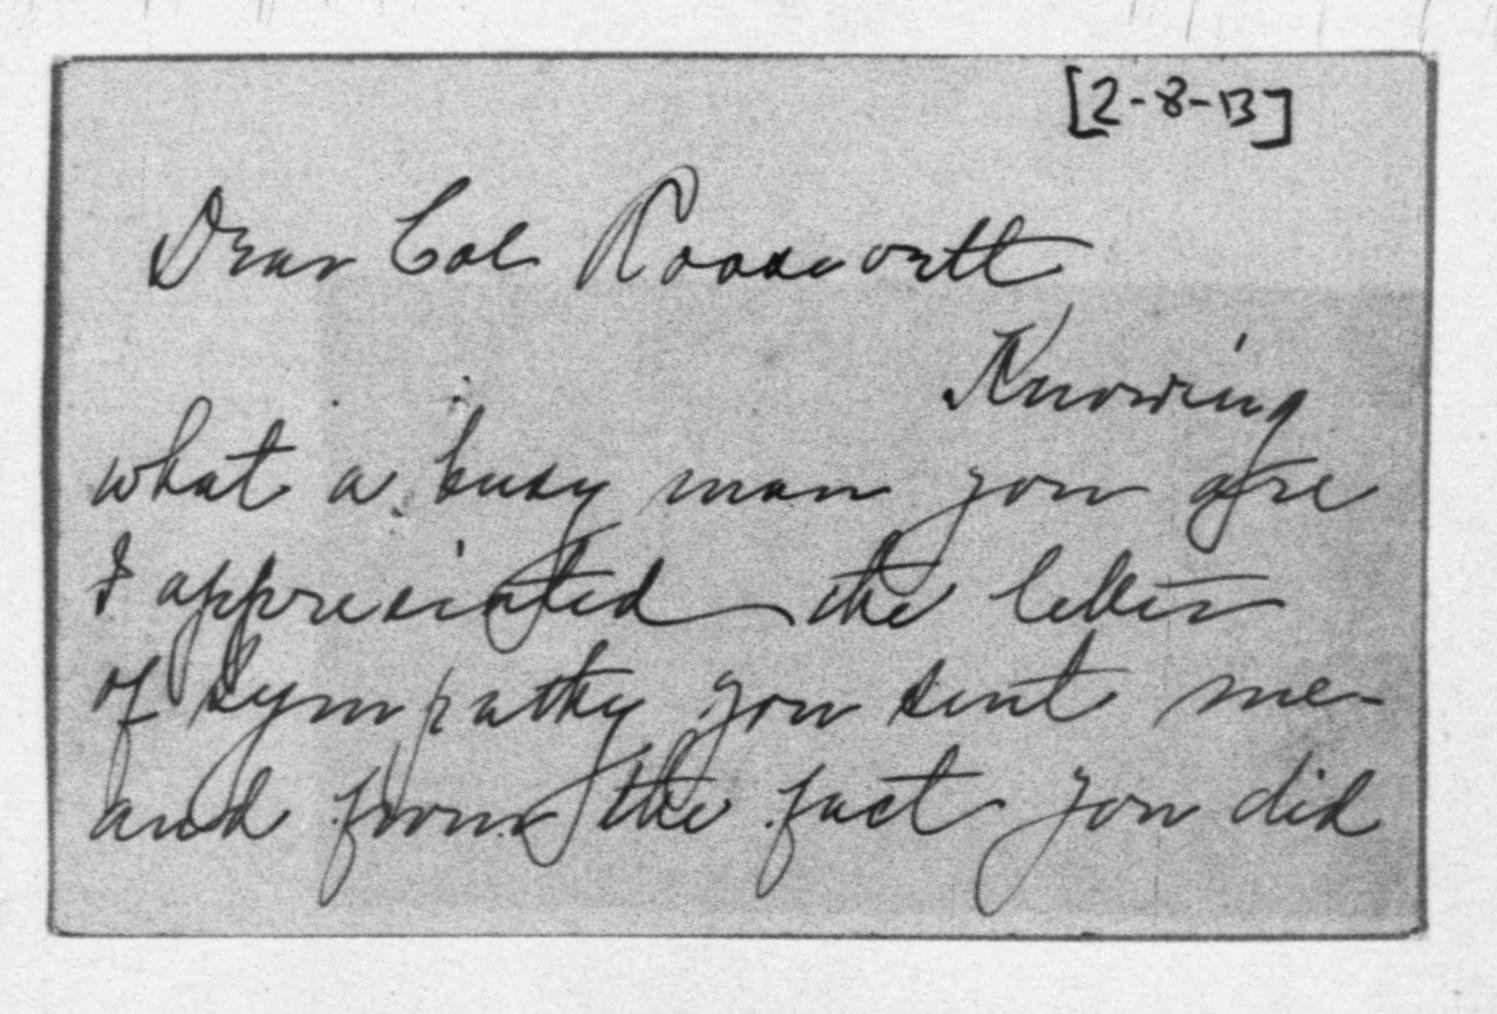 [2-8-13]
Dear Col Roosevelt
Knowing
what a busy man you are
I appreciated the letter
of sympathy you sent me
and from the fact you did